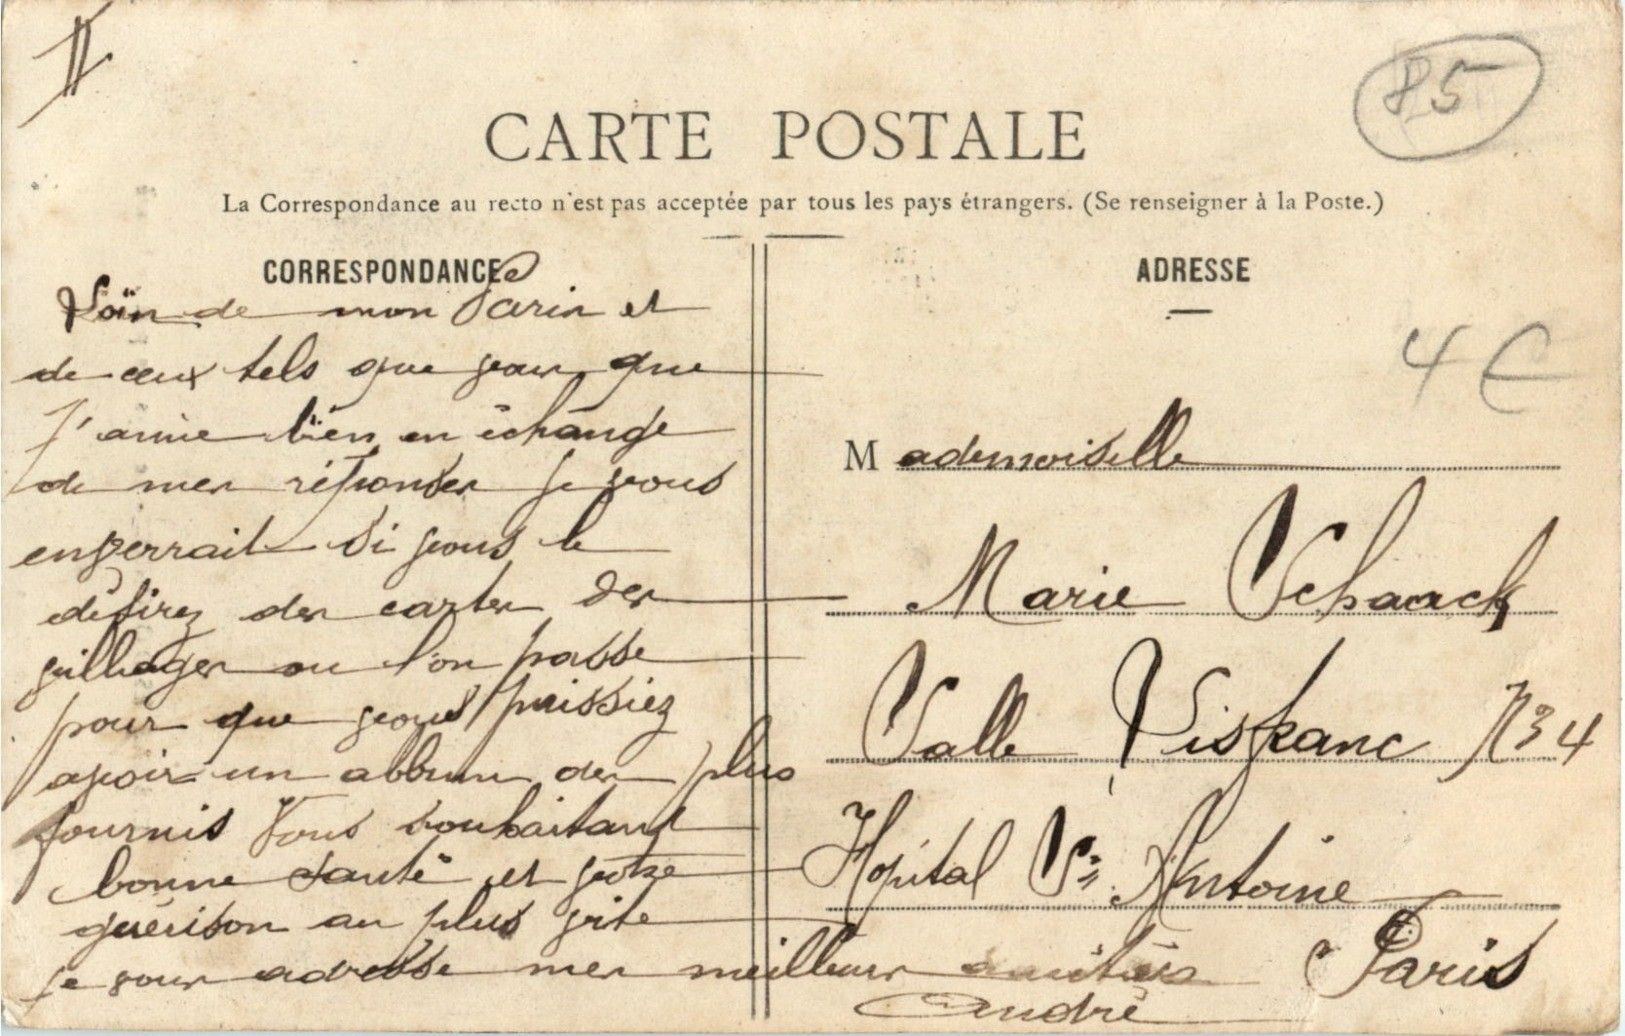 II
85
CARTE POSTALE
La Correspondance au recto n'est pas acceptée par tous les pays étrangers. (Se renseigner à la Poste.)
CORRESPONDANCE
Loin de mon Paris et
de ceux tels que vous que
j'aime bien en échange
de mes réponses je vous
enverrait si vous le
désirez des cartes des
villages ou l'on passe
pour que vous puissiez
avoir un album des plus
fournis Vous souhaitant
bonne santé et votre
guérison au plus vite
je vous adresse mes meilleurs amitiés
André
ADRESSE
4 €
Mademoiselle
Marie Schaack
Salle Visfranc N 34
Hopital St Antoine
Paris